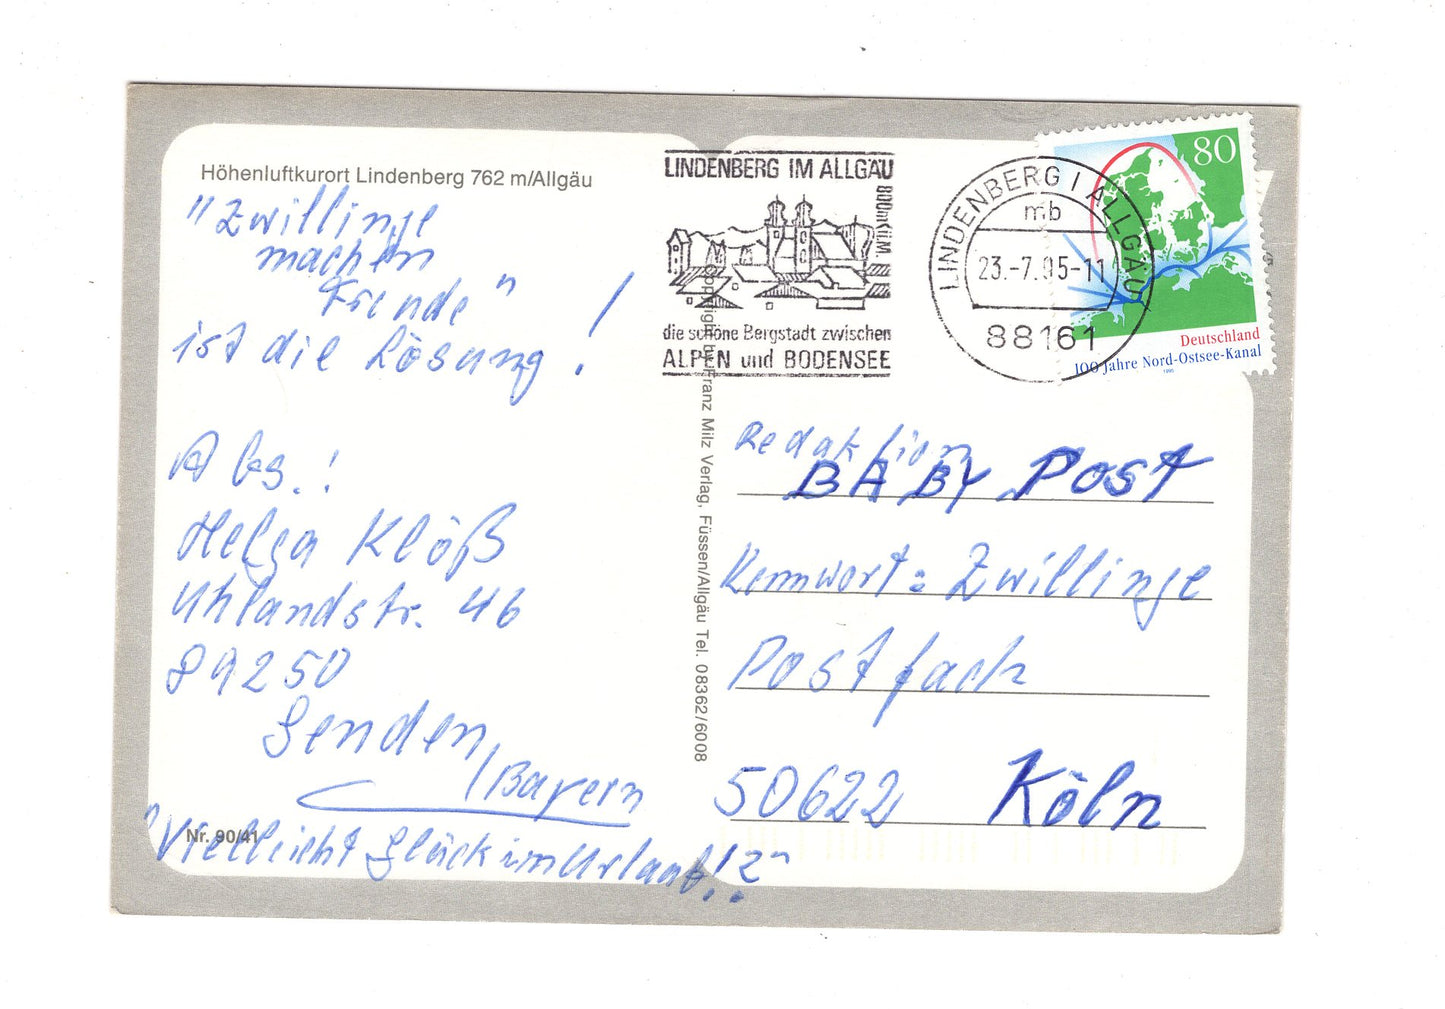 Höhenluftkurort Lindenberg 762 m/Allgäu
"Zwillinge
machen
Freude"
ist die Lösung!
Abs.!
Helga Klöß
Uhlandstr. 46
89250
Senden/Bayern
Nr. 90/41
"Vielleicht Glück im Urlaub!?"
LINDENBERG IM ALLGÄU
800m ü.M.
die schöne Bergstadt zwischen
ALPEN und BODENSEE
LINDENBERG I ALLGÄU
mb
23.-7.95-11
88161
80
Deutschland
100 Jahre Nord-Ostsee-Kanal
1995
Copyright by Franz Milz Verlag, Füssen/Allgäu Tel. 08362/6008
Redaktion
BABY POST
Kennwort: Zwillinge
Postfach
50622 Köln